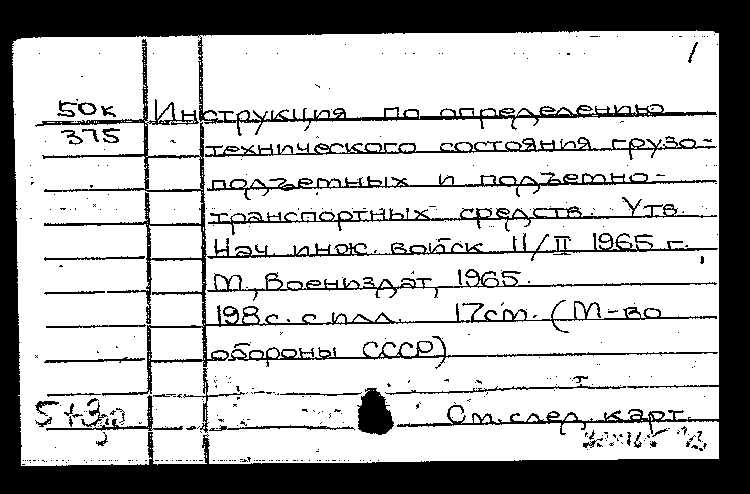 1
50к Инструкция по определению
375
технического состояния грузо-
подъемных и подъемно-
транспортных средств. Утв.
Нач. инж. войск 11/II 1965 г.
М., Воениздат, 1965.
198 с. с илл. 17 см. (М-во
обороны СССР)
См. след. карт.